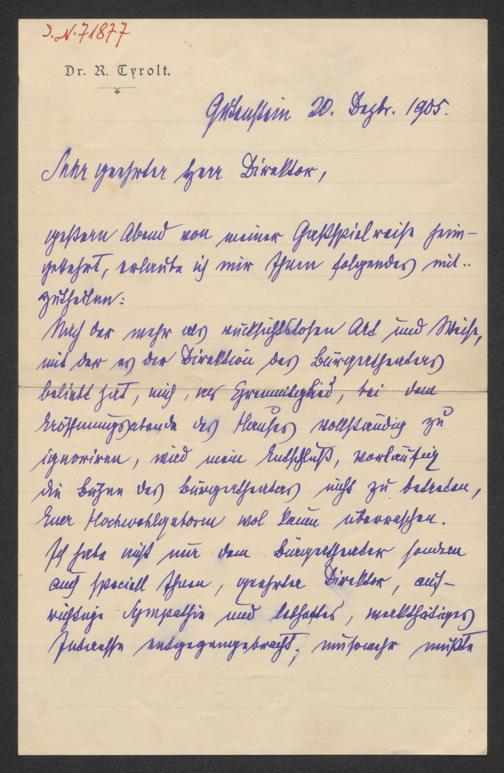 J.N. 71877
Dr. R. Tyrolt.
Gutenstein 20. Dezbr. 1905.
Sehr geehrter Herr Direktor,
gestern Abend von meiner Gastspielreise heim-
gekehrt, erlaube ich mir Ihnen folgendes mit-
zutheilen:
Nach der mehr als rücksichtslosen Art und Weise,
mit der es der Direktion des Bürgertheaters
beliebt hat, mich, als Ehrenmitglied, bei dem
Eröffnungsabende des Hauses vollständig zu
ignoriren, wird mein Entschluß, vorläufig
die Bühne des Bürgertheaters nicht zu betreten,
Euer Hochwohlgeborn wol kaum überraschen.
Ich habe nicht nur dem Bürgertheater sondern
auch speciell Ihnen, geehrter Direktor, auf-
richtige Sympathie und lebhaftes, werkthätiges
Interesse entgegengebracht; umsomehr mußte